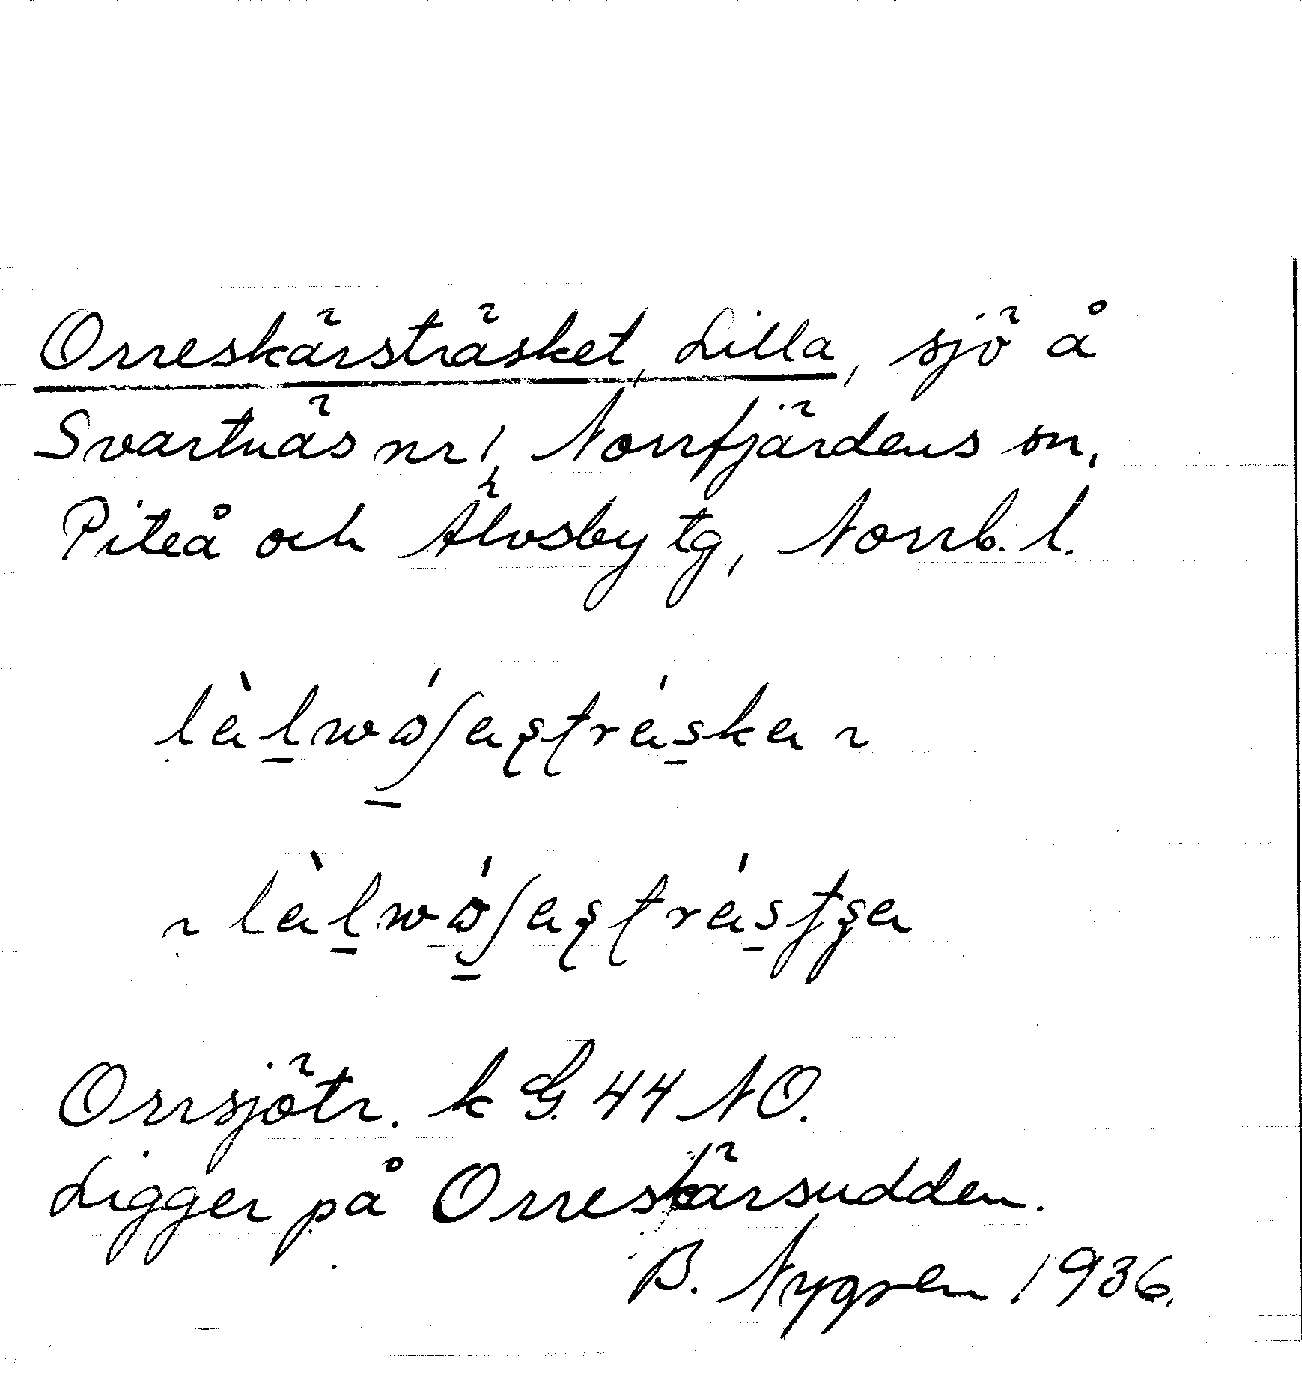 Orreskärsträsket, Lilla, sjö å
Svartnäs nr 1, Norrfjärdens sn,
Piteå och Älvsby tg, Norrb. l.
Orrsjötr. k G. 44 NO.
Ligger på Orreskärsudden.
B. Nygren 1936.